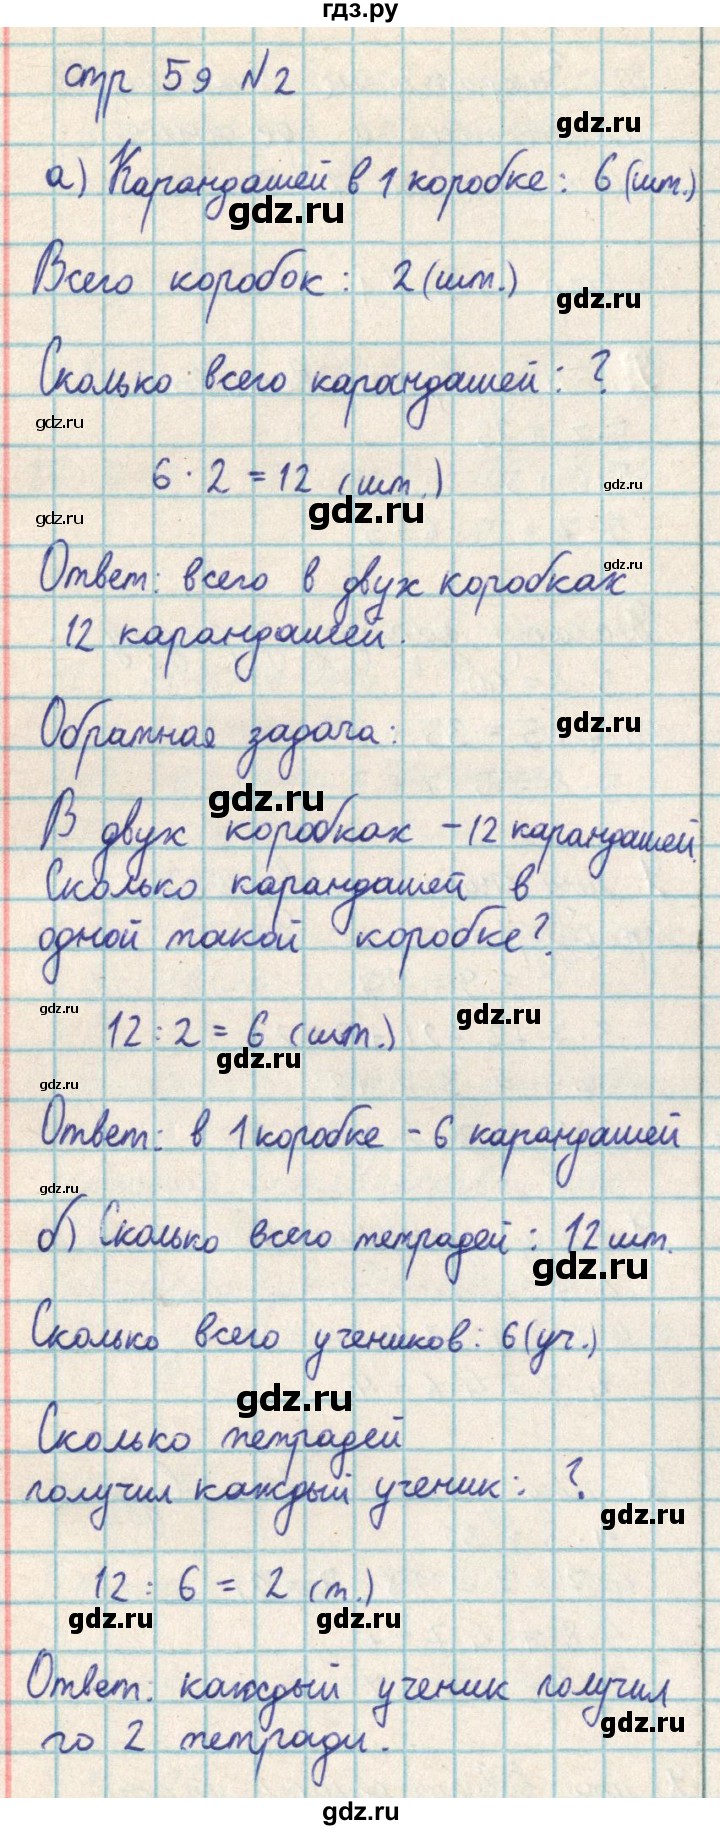 гдз.ру
стр 59 №2
gdz.ru
а) Карандашей в 1 коробке: 6 (шт.)
gdz.ru
Всего коробок: 2 (шт.)
gdz.ru
Сколько всего карандашей: ?
gdz.ru
6 · 2 = 12 (шт.)
gdz.ru
gdz.ru
gdz.ru
gdz.ru
Ответ: всего в двух коробках
12 карандашей.
Обратная задача:
gdz.ru
gdz.ru
В двух коробках - 12 карандашей.
Сколько карандашей в
одной такой коробке?
gdz.ru
gdz.ru
12 : 2 = 6 (шт.)
gdz.ru
gdz.ru
Ответ: в 1 коробке - 6 карандашей
gdz.ru
б) Сколько всего тетрадей: 12 шт.
gdz.ru
Сколько всего учеников: 6 (уч.)
gdz.ru
Сколько тетрадей
получил каждый ученик: ?
gdz.ru
12 : 6 = 2 (т.)
gdz.ru
gdz.ru
Ответ: каждый ученик получил
gdz.ru
по 2 тетради.
gdz.ru